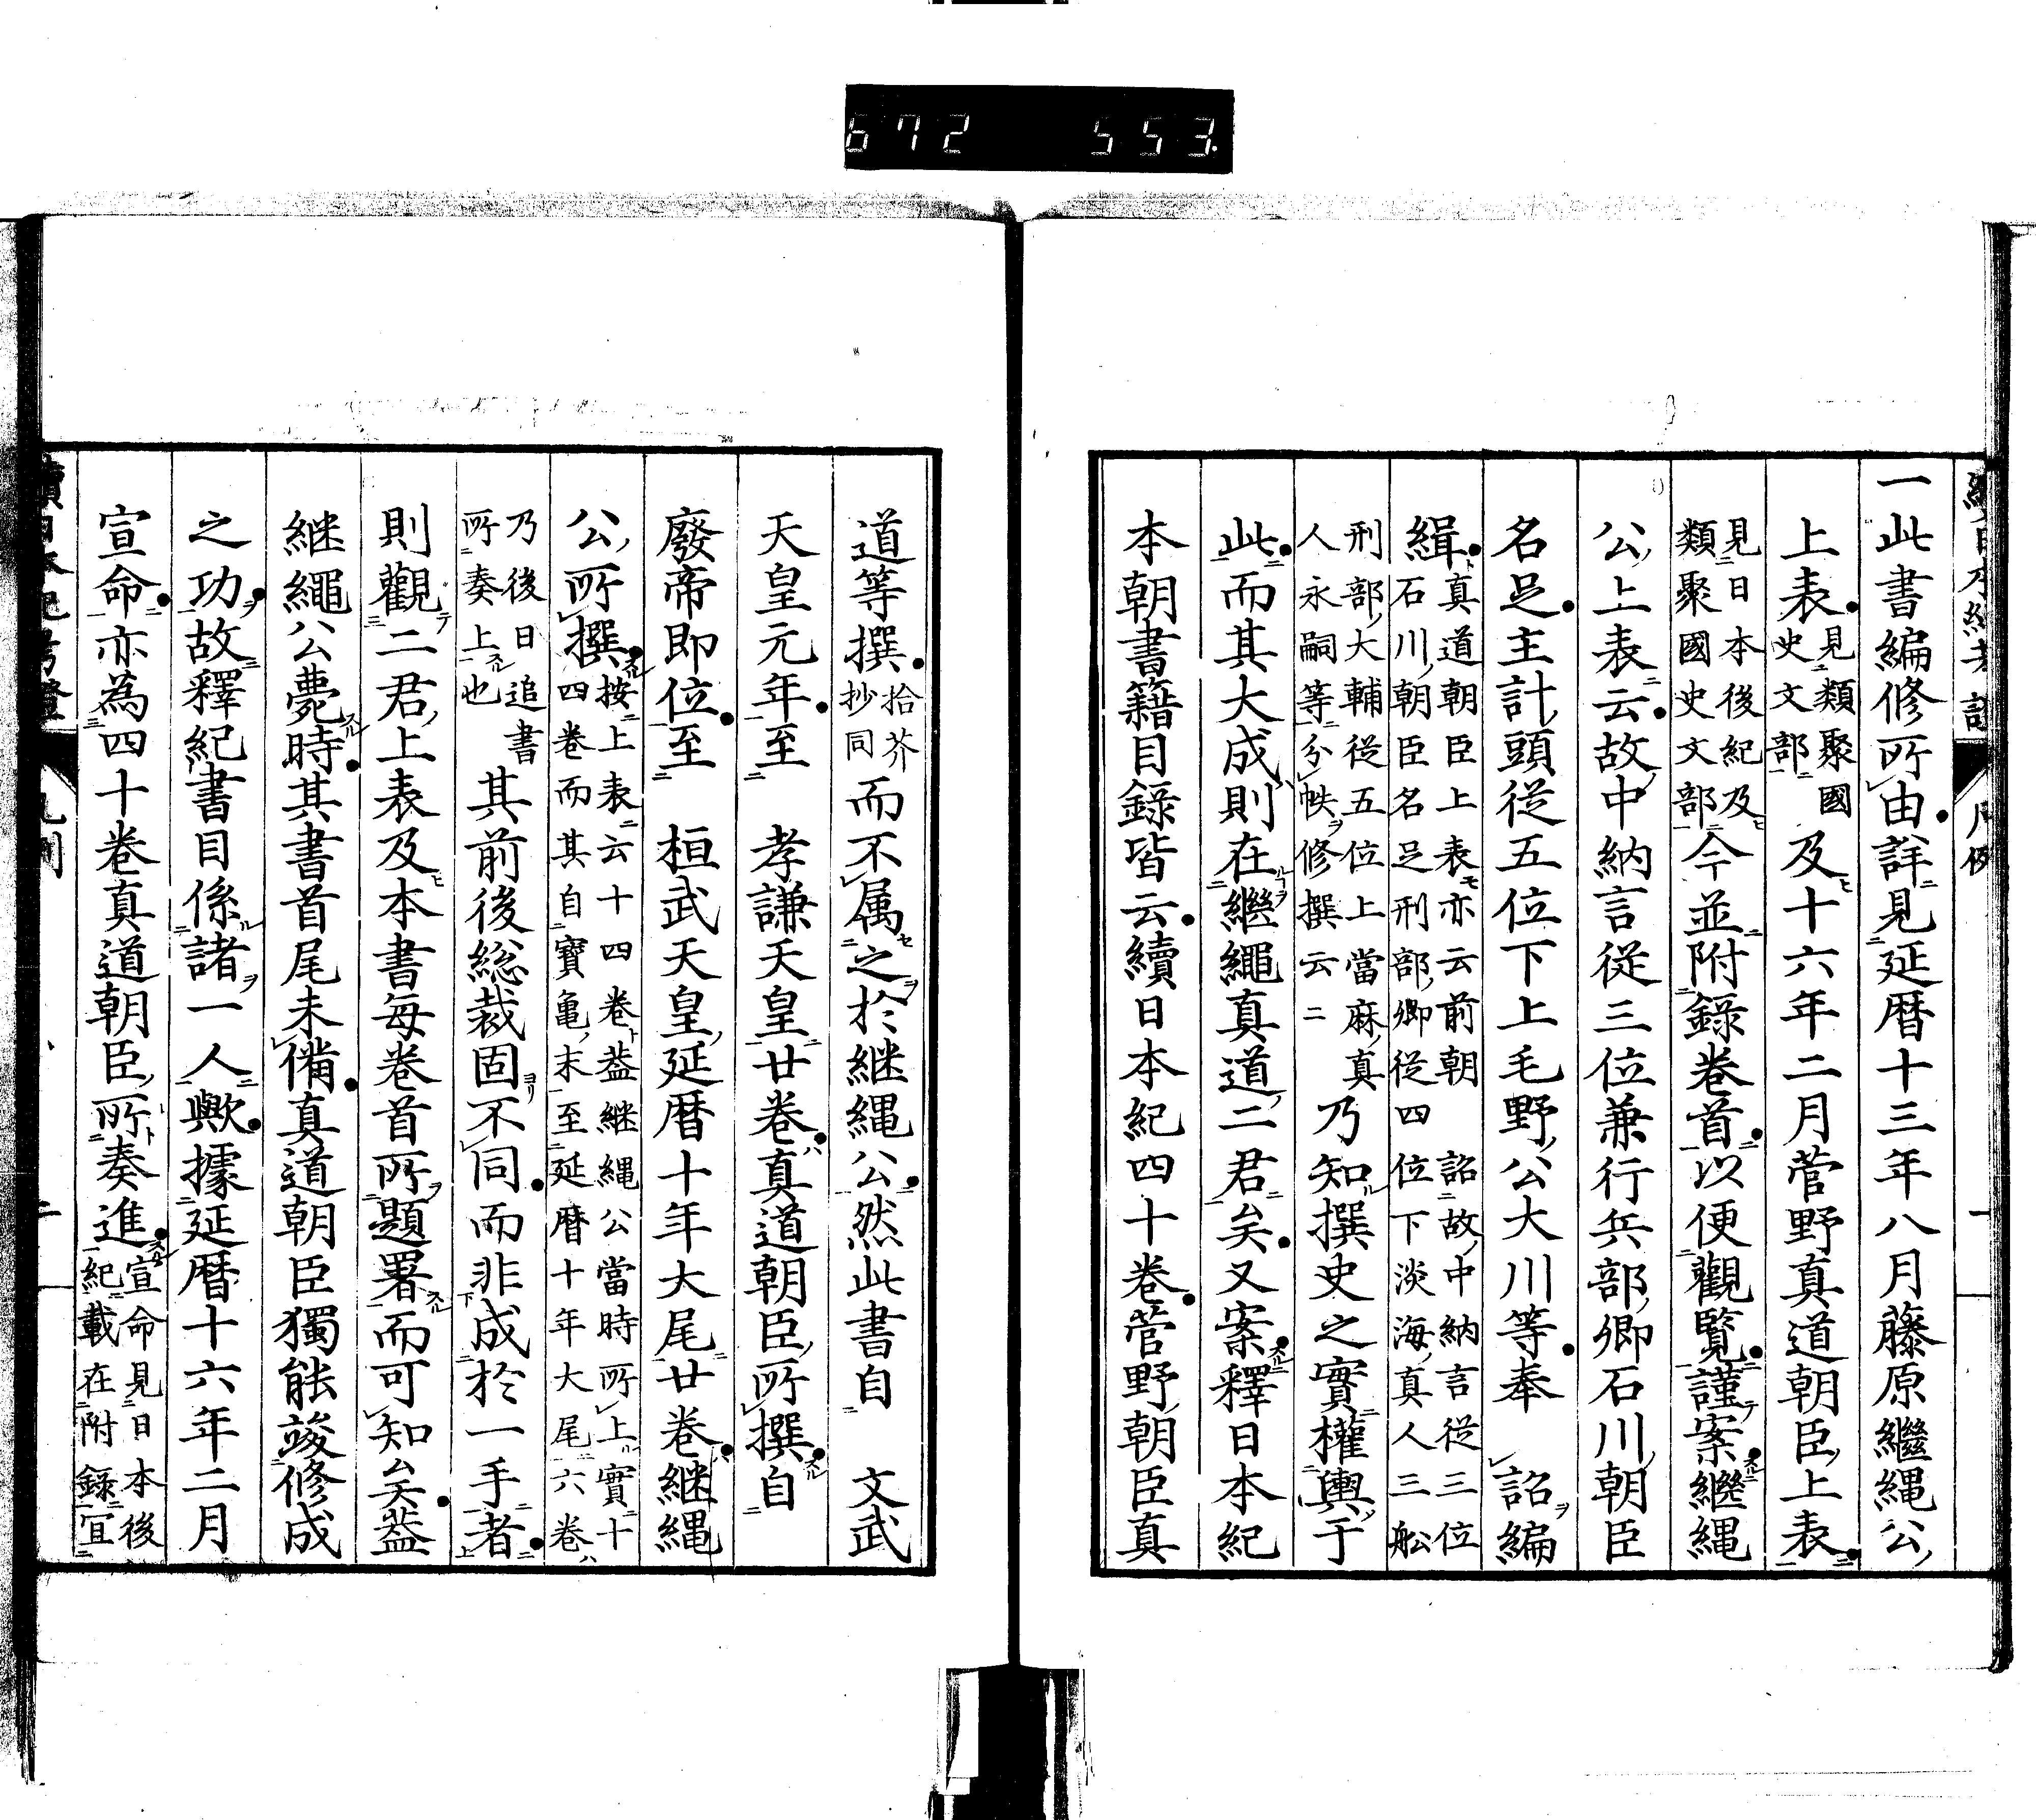 672 553
一此書編修所由詳見延暦十三年八月藤原繼縄公
上表見類聚國史文部及十六年二月菅野真道朝臣上表
見日本後紀及類聚國史文部今並附錄卷首以便觀覧謹案繼縄
公上表云故中納言從三位兼行兵部卿石川朝臣
名足主計頭從五位下上毛野公大川等奉　詔編
緝真道朝臣上表亦云前朝　詔故中納言從三位石川朝臣名足刑部卿從四位下淡海真人三舩
刑部大輔從五位上當麻真人永嗣等分帙修撰云二乃知撰史之實權輿于
此而其大成則在繼繩真道二君矣又案釋日本紀
本朝書籍目錄皆云續日本紀四十卷菅野朝臣真
道等撰拾芥抄同而不属之於継縄公然此書自　文武
天皇元年至　孝謙天皇廿卷真道朝臣所撰自
廢帝即位至　桓武天皇延暦十年大尾廿卷継縄
公所撰按上表云十四卷葢継縄公當時所上實十四卷而其自寳亀末至延暦十年大尾六卷
乃後日追書所奏上也其前後総裁固不同而非成於一手者
則觀二君上表及本書每卷首所題署而可知矣葢
継繩公薨時其書首尾未備真道朝臣獨能竣修成
之功故釋紀書目係諸一人歟據延暦十六年二月
宣命亦為四十卷真道朝臣所奏進宣命見日本後紀載在附錄宜